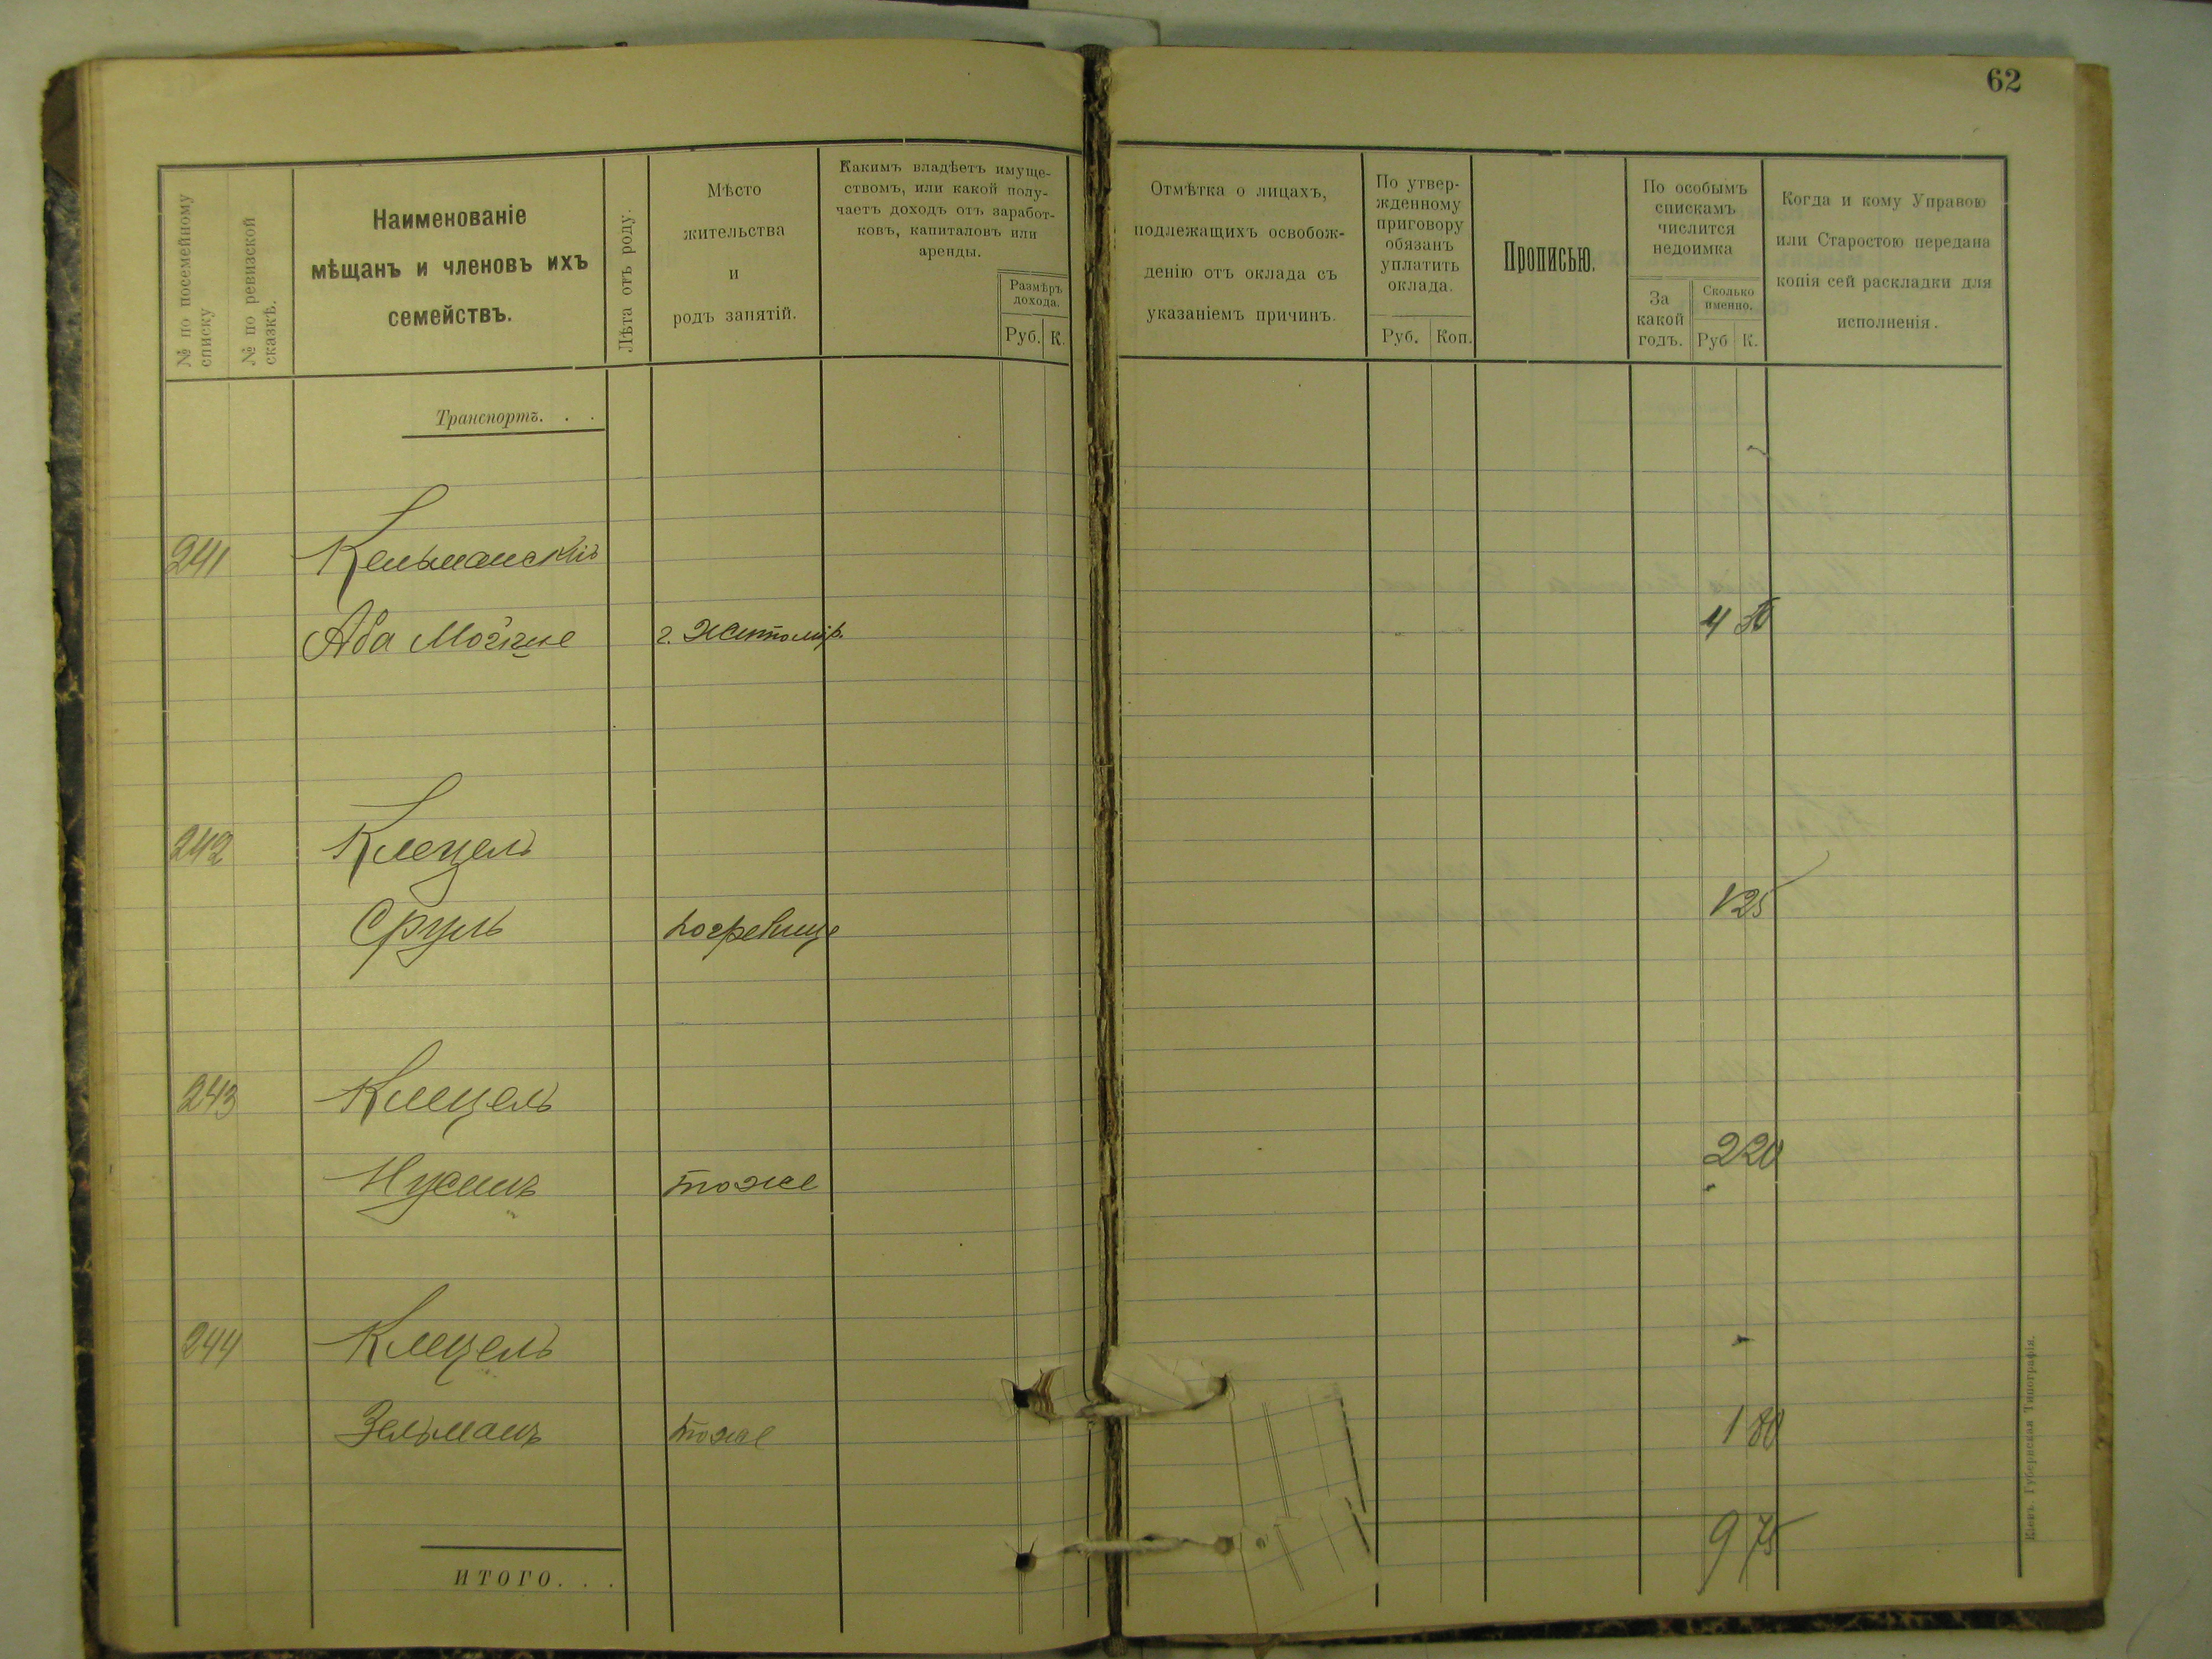 62
№ по посемейному списку
№ по ревизской сказкѣ.
Наименованіе
мѣщанъ и членовъ ихъ
семействъ.
Лѣта отъ роду.
Мѣсто
жительства
и
родъ занятій.
Какимъ владѣетъ имуще-
ствомъ, или какой полу-
чаетъ доходъ отъ заработ-
ковъ, капиталовъ или
аренды.
Размѣръ
дохода.
Руб. К.
Отмѣтка о лицахъ,
подлежащихъ освобож-
денію отъ оклада съ
указаніемъ причинъ.
По утвер-
жденному
приговору
обязанъ
уплатить
оклада.
Руб. Коп.
Прописью.
По особымъ
спискамъ
числится
недоимка
За
какой
годъ.
Сколько
именно.
Руб К.
Когда и кому Управою
или Старостою передана
копія сей раскладки для
исполненія.
Транспортъ. . .
241 Кельманскій
Аба г. Житомир. 4 50
242 Клецель
Сруль погребище 1 25
243 Клецель
Нусинъ тоже 2 20
244 Клецель
Зельманъ тоже 1 80
9 75
ИТОГО. . .
Кіевъ. Губернская Типографія.